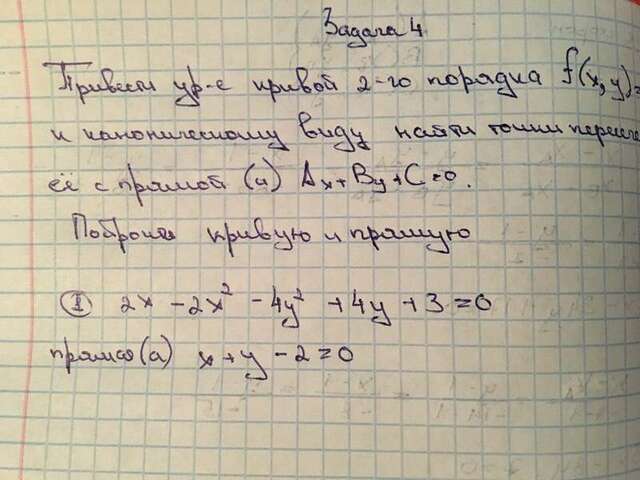 Задача 4
Привести ур-е кривой 2-го порядка f(x,y)=
к каноническому виду найти точки пересеч
её с прямой (а) Ax+By+C=0.
Построить кривую и прямую
① 2x - 2x² - 4y² + 4y + 3 = 0
прямая (а) x + y - 2 = 0